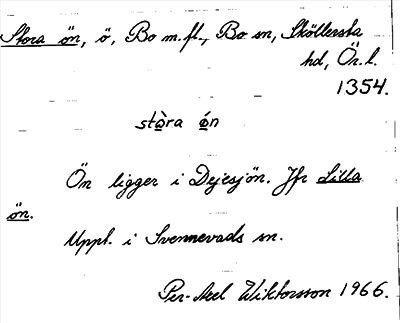 Stora ön, ö, Bo m.fl., Bo sn, Sköllersta
hd, Ör. l.
1354.
stòra ǿn
Ön ligger i Dejesjön. Jfr Lilla
ön.
Uppt. i Svennevads sn.
Per-Axel Wiktorsson 1966.